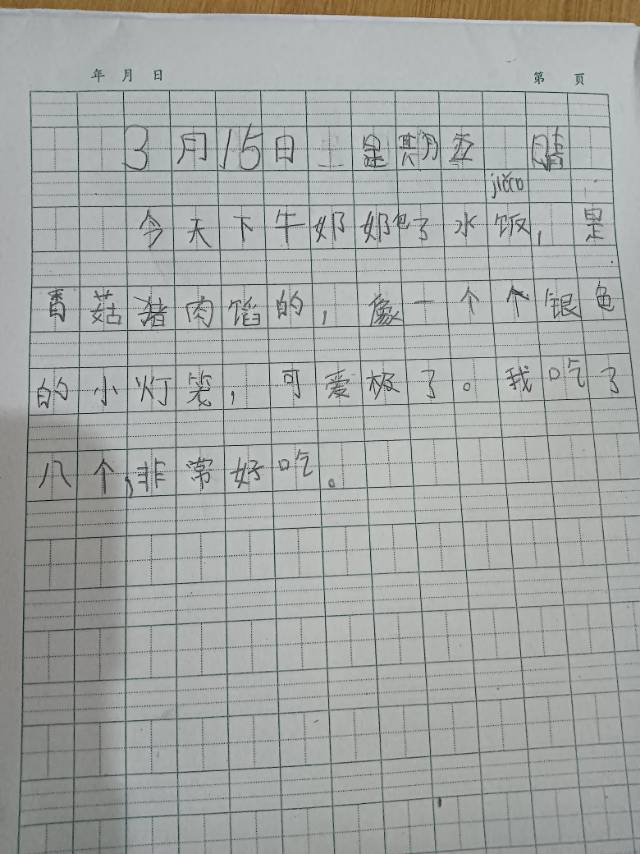 年 月 日 第 页
3月15日 星期五 晴
jiǎo
今天下午奶奶包了水饭，是
香菇猪肉馅的，像一个个银色
的小灯笼，可爱极了。我吃了
八个，非常好吃。